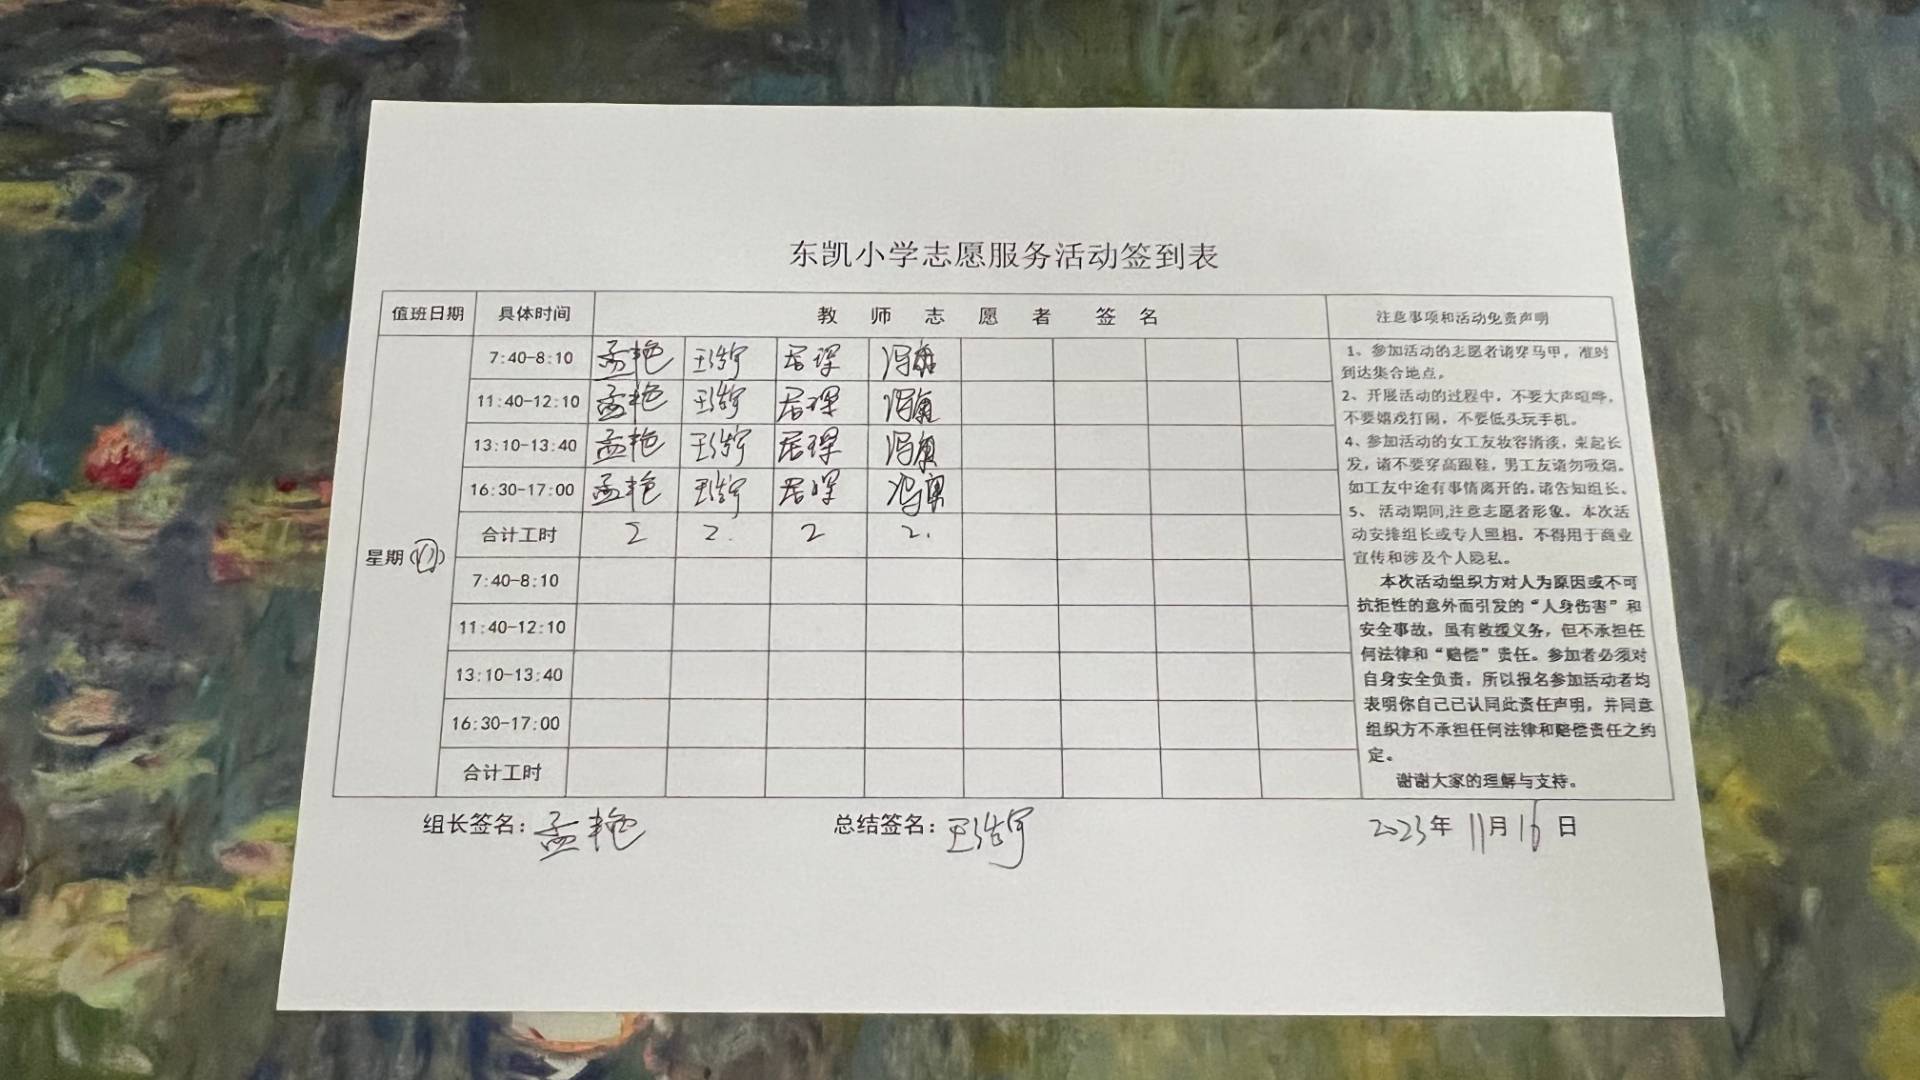 东凯小学志愿服务活动签到表
值班日期 具体时间 教 师 志 愿 者 签 名 注意事项和活动免责声明
星期(四)
7:40-8:10 孟艳 王浩宇 居琛 冯康
11:40-12:10 孟艳 王浩宇 居琛 冯康
13:10-13:40 孟艳 王浩宇 居琛 冯康
16:30-17:00 孟艳 王浩宇 居琛 冯康
合计工时 2 2. 2 2.
7:40-8:10
11:40-12:10
13:10-13:40
16:30-17:00
合计工时
1、参加活动的志愿者请穿马甲，准时
到达集合地点。
2、开展活动的过程中，不要大声喧哗，
不要嬉戏打闹，不要低头玩手机。
4、参加活动的女工友妆容清淡，束起长
发，请不要穿高跟鞋，男工友请勿吸烟。
如工友中途有事情离开的，请告知组长。
5、 活动期间,注意志愿者形象。本次活
动安排组长或专人照相，不得用于商业
宣传和涉及个人隐私。
本次活动组织方对人为原因或不可
抗拒性的意外而引发的“人身伤害”和
安全事故，虽有救援义务，但不承担任
何法律和“赔偿”责任。参加者必须对
自身安全负责，所以报名参加活动者均
表明你自己已认同此责任声明，并同意
组织方不承担任何法律和赔偿责任之约
定。
谢谢大家的理解与支持。
组长签名：孟艳 总结签名：王浩宇 2023年 11月16日